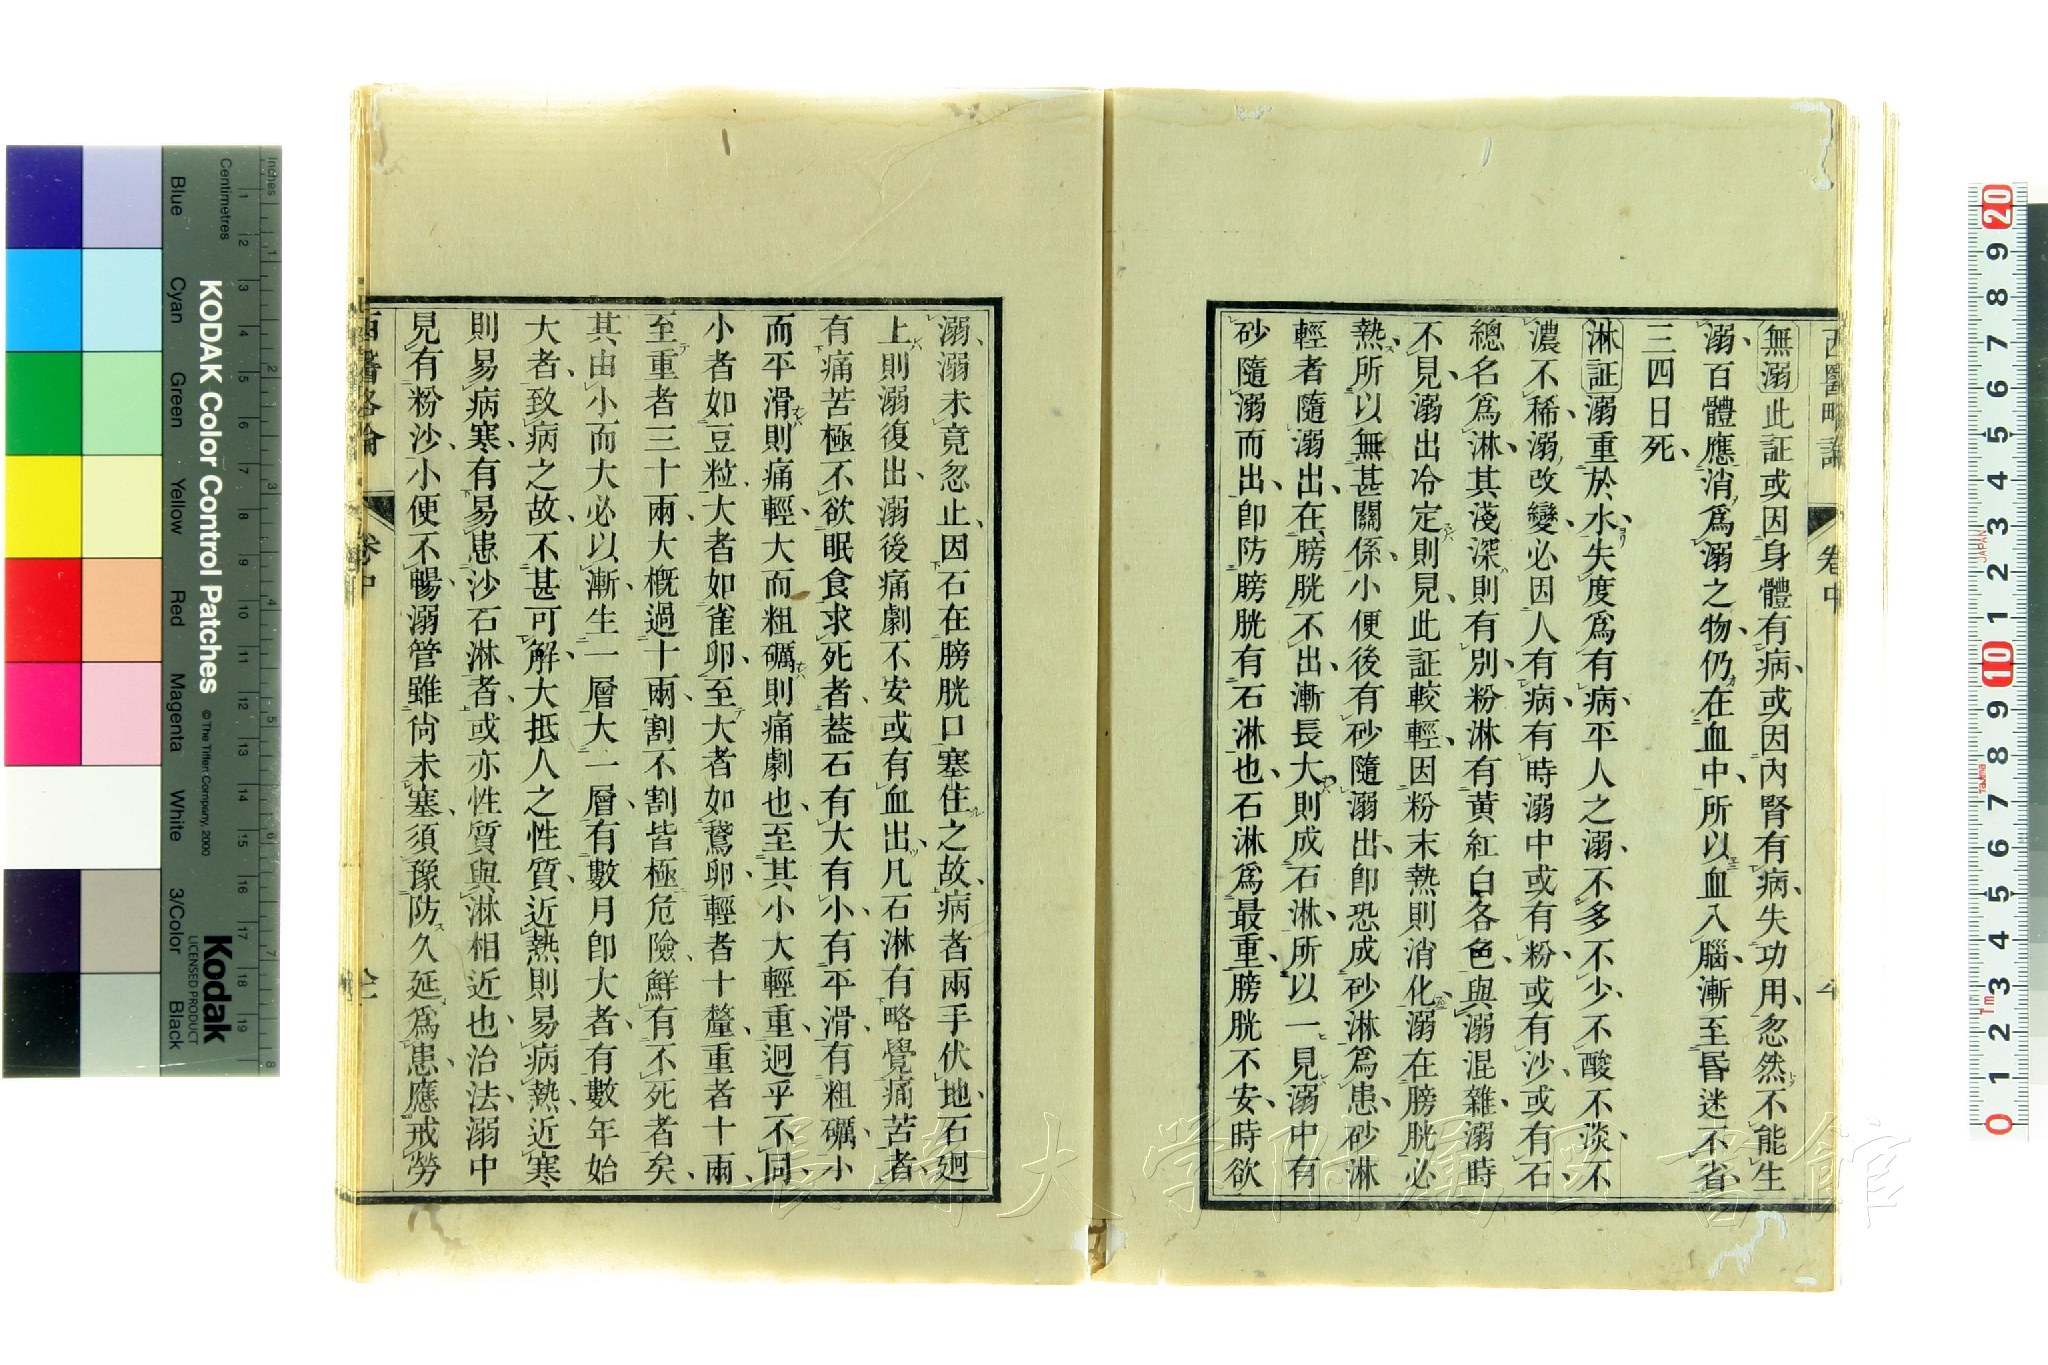 西醫略論
卷中
無溺此証或因身體有病或因內腎有病失功用忽然不能生
溺百體應消爲溺之物仍在血中所以血入腦漸至昏迷不省
三四日死
淋証溺重於水失度爲有病平人之溺不多不少不酸不淡不
濃不稀溺改變必因人有病有時溺中或有粉或有沙或有石
總名爲淋其淺深則有別粉淋有黃紅白各色與溺混雜溺時
不見溺出冷定則見此証較輕因粉末熱則消化溺在膀胱必
熱所以無甚關係小便後有砂隨溺出卽恐成砂淋爲患砂淋
輕者隨溺出在膀胱不出漸長大則成石淋所以一見溺中有
砂隨溺而出卽防膀胱有石淋也石淋爲最重膀胱不安時欲
溺溺未竟忽止因石在膀胱口塞住之故病者兩手伏地石迴
上則溺復出溺後痛劇不安或有血出凡石淋有略覺痛苦者
有痛苦極不欲眠食求死者葢石有大有小有平滑有粗礪小
而平滑則痛輕大而粗礪則痛劇也至其小大輕重迥乎不同
小者如豆粒大者如雀卵至大者如鵞卵輕者十釐重者十兩
至重者三十兩大槪過十兩割不割皆極危險鮮有不死者矣
其由小而大必以漸生一層大一層有數月卽大者有數年始
大者致病之故不甚可解大抵人之性質近熱則易病熱近寒
則易病寒有易患沙石淋者或亦性質與淋相近也治法溺中
見有粉沙小便不暢溺管雖尙未塞須豫防久延爲患應戒勞
西醫略論
卷中
長崎大学附属図書館
KODAK Color Control Patches
© The Tiffen Company, 2000
Kodak
LICENSED PRODUCT
Inches
Centimetres
Blue
Cyan
Green
Yellow
Red
Magenta
White
3/Color
Black
1 2 3 4 5 6 7 8
1 2 3 4 5 6 7 8 9 10 11 12 13 14 15 16 17 18 19
20 9 8 7 6 5 4 3 2 1 10 9 8 7 6 5 4 3 2 1 0
JAPAN